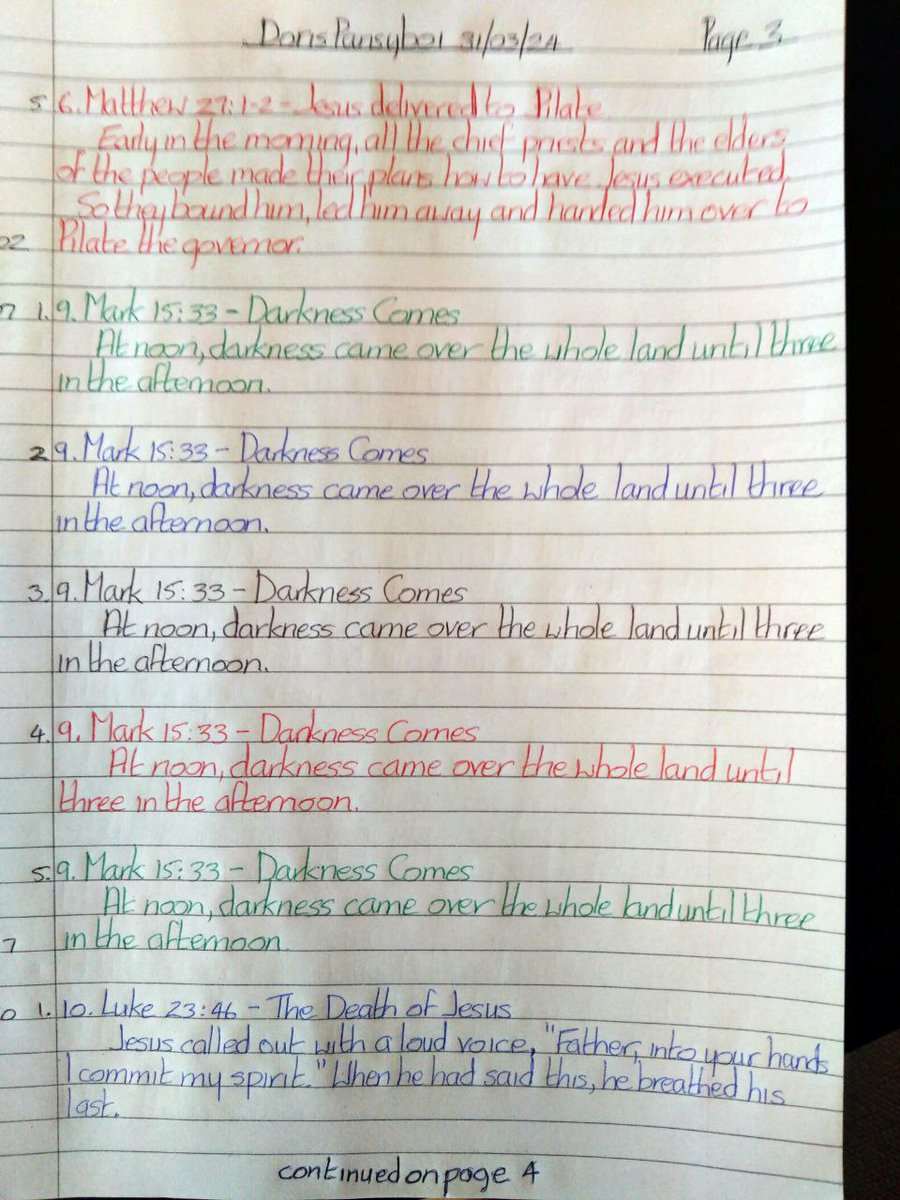 DorisPansybo1 31/03/24 Page 3
5 6. Matthew 27:1-2 - Jesus delivered to Pilate
Early in the morning, all the chief priests and the elders
of the people made their plans how to have Jesus executed.
So they bound him, led him away and handed him over to
02 Pilate the governor.
1. 9. Mark 15:33 - Darkness Comes
At noon, darkness came over the whole land until three
in the afternoon.
2 9. Mark 15:33 - Darkness Comes
At noon, darkness came over the whole land until three
in the afternoon.
3. 9. Mark 15:33 - Darkness Comes
At noon, darkness came over the whole land until three
in the afternoon.
4. 9. Mark 15:33 - Darkness Comes
At noon, darkness came over the whole land until
three in the afternoon.
5. 9. Mark 15:33 - Darkness Comes
At noon, darkness came over the whole land until three
7 in the afternoon.
1. 10. Luke 23:46 - The Death of Jesus
Jesus called out with a loud voice, "Father, into your hands
I commit my spirit." When he had said this, he breathed his
last.
continued on page 4